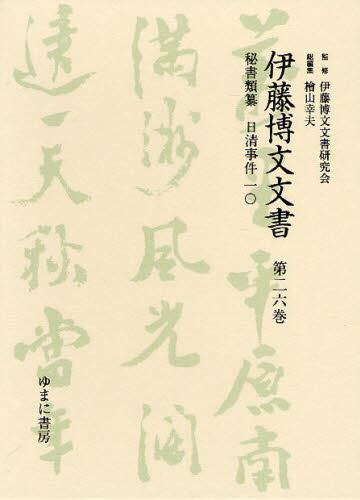 監修 伊藤博文文書研究会
総編集 檜山幸夫
伊藤博文文書 第二六巻
秘書類纂 日清事件 一〇
ゆまに書房
平原南
満洲風光闊
遠一天秋当年